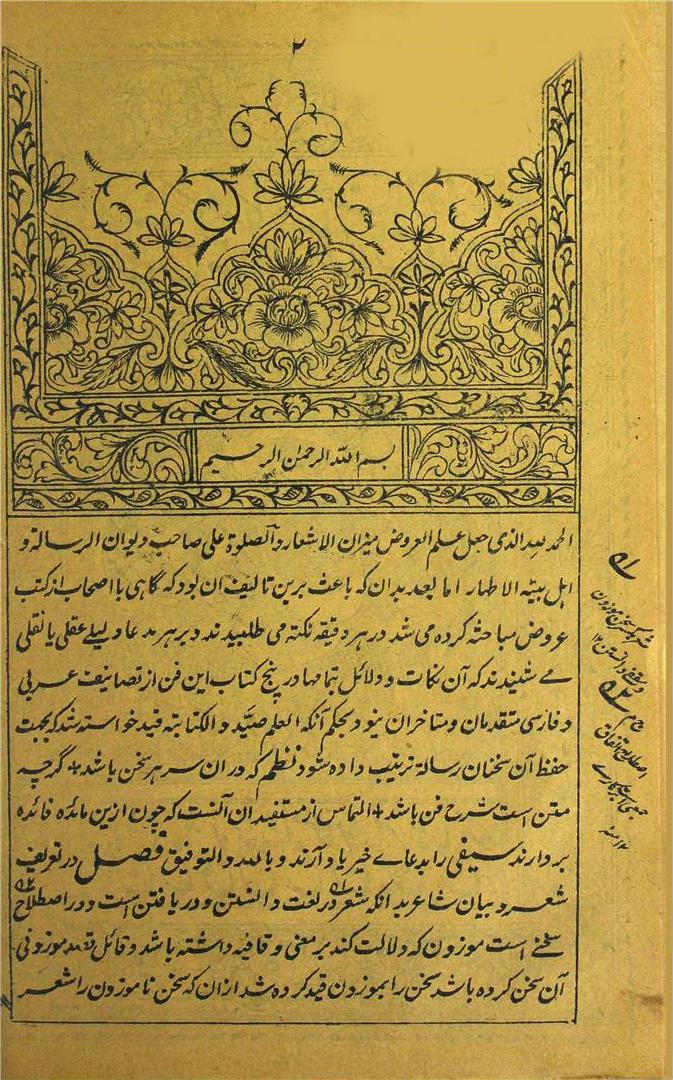 ۲
بسم الله الرحمن الرحیم
الحمد لله الذی جعل علم العروض میزان الاشعار و الصلوة علی صاحب دیوان الرسالة و
اهل بیته الاطهار اما بعد بدان که باعث برین تالیف آن بود که گاهی با اصحاب از کتب
عروض مباحثه کرده می شد در هر دقیقه نکته می طلبیدند و بر هر مدعا دلیلے عقلی یا نقلی
مے شنیدند که آن نکات و دلائل بتمامها در پنج کتاب این فن از تصانیف عربی
و فارسی متقدمان و متاخران نبود بحکم آنکه العلم صید و الکتابة قید خواسته شد که بجهت
حفظ آن سخنان رسالة ترتیب داده شود نظم که در آن سر هر سخن باشد * گرچه
متن است شرح فن باشد * التماس از مستفیدان آنست که چون ازین مائده فائده
بردارند سیفی را بدعاے خیر یاد آرند و بالله التوفیق فصل در تعریف
شعر و بیان شاعر بدانکه شعر در لغت دانستن و دریافتن است و در اصطلاح
سخنے است موزون که دلالت کند بر معنی و قافیه داشته باشد و قائل قصد موزونی
آن سخن کرده باشد سخن را بموزون قید کرده شد از آن که سخن ناموزون را شعر